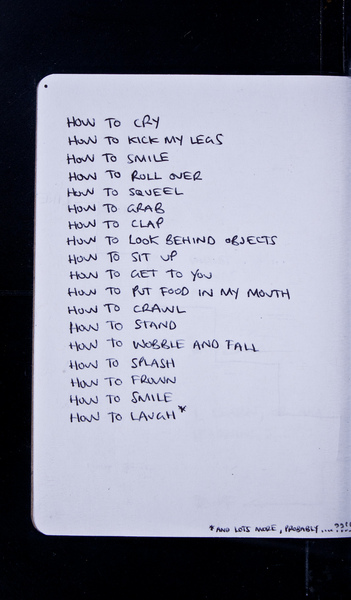 HOW TO CRY
HOW TO KICK MY LEGS
HOW TO SMILE
HOW TO ROLL OVER
HOW TO SQUEEL
HOW TO GRAB
HOW TO CLAP
HOW TO LOOK BEHIND OBJECTS
HOW TO SIT UP
HOW TO GET TO YOU
HOW TO PUT FOOD IN MY MOUTH
HOW TO CRAWL
HOW TO STAND
HOW TO WOBBLE AND FALL
HOW TO SPLASH
HOW TO FROWN
HOW TO SMILE
HOW TO LAUGH*
*AND LOTS MORE, PROBABLY....??!!